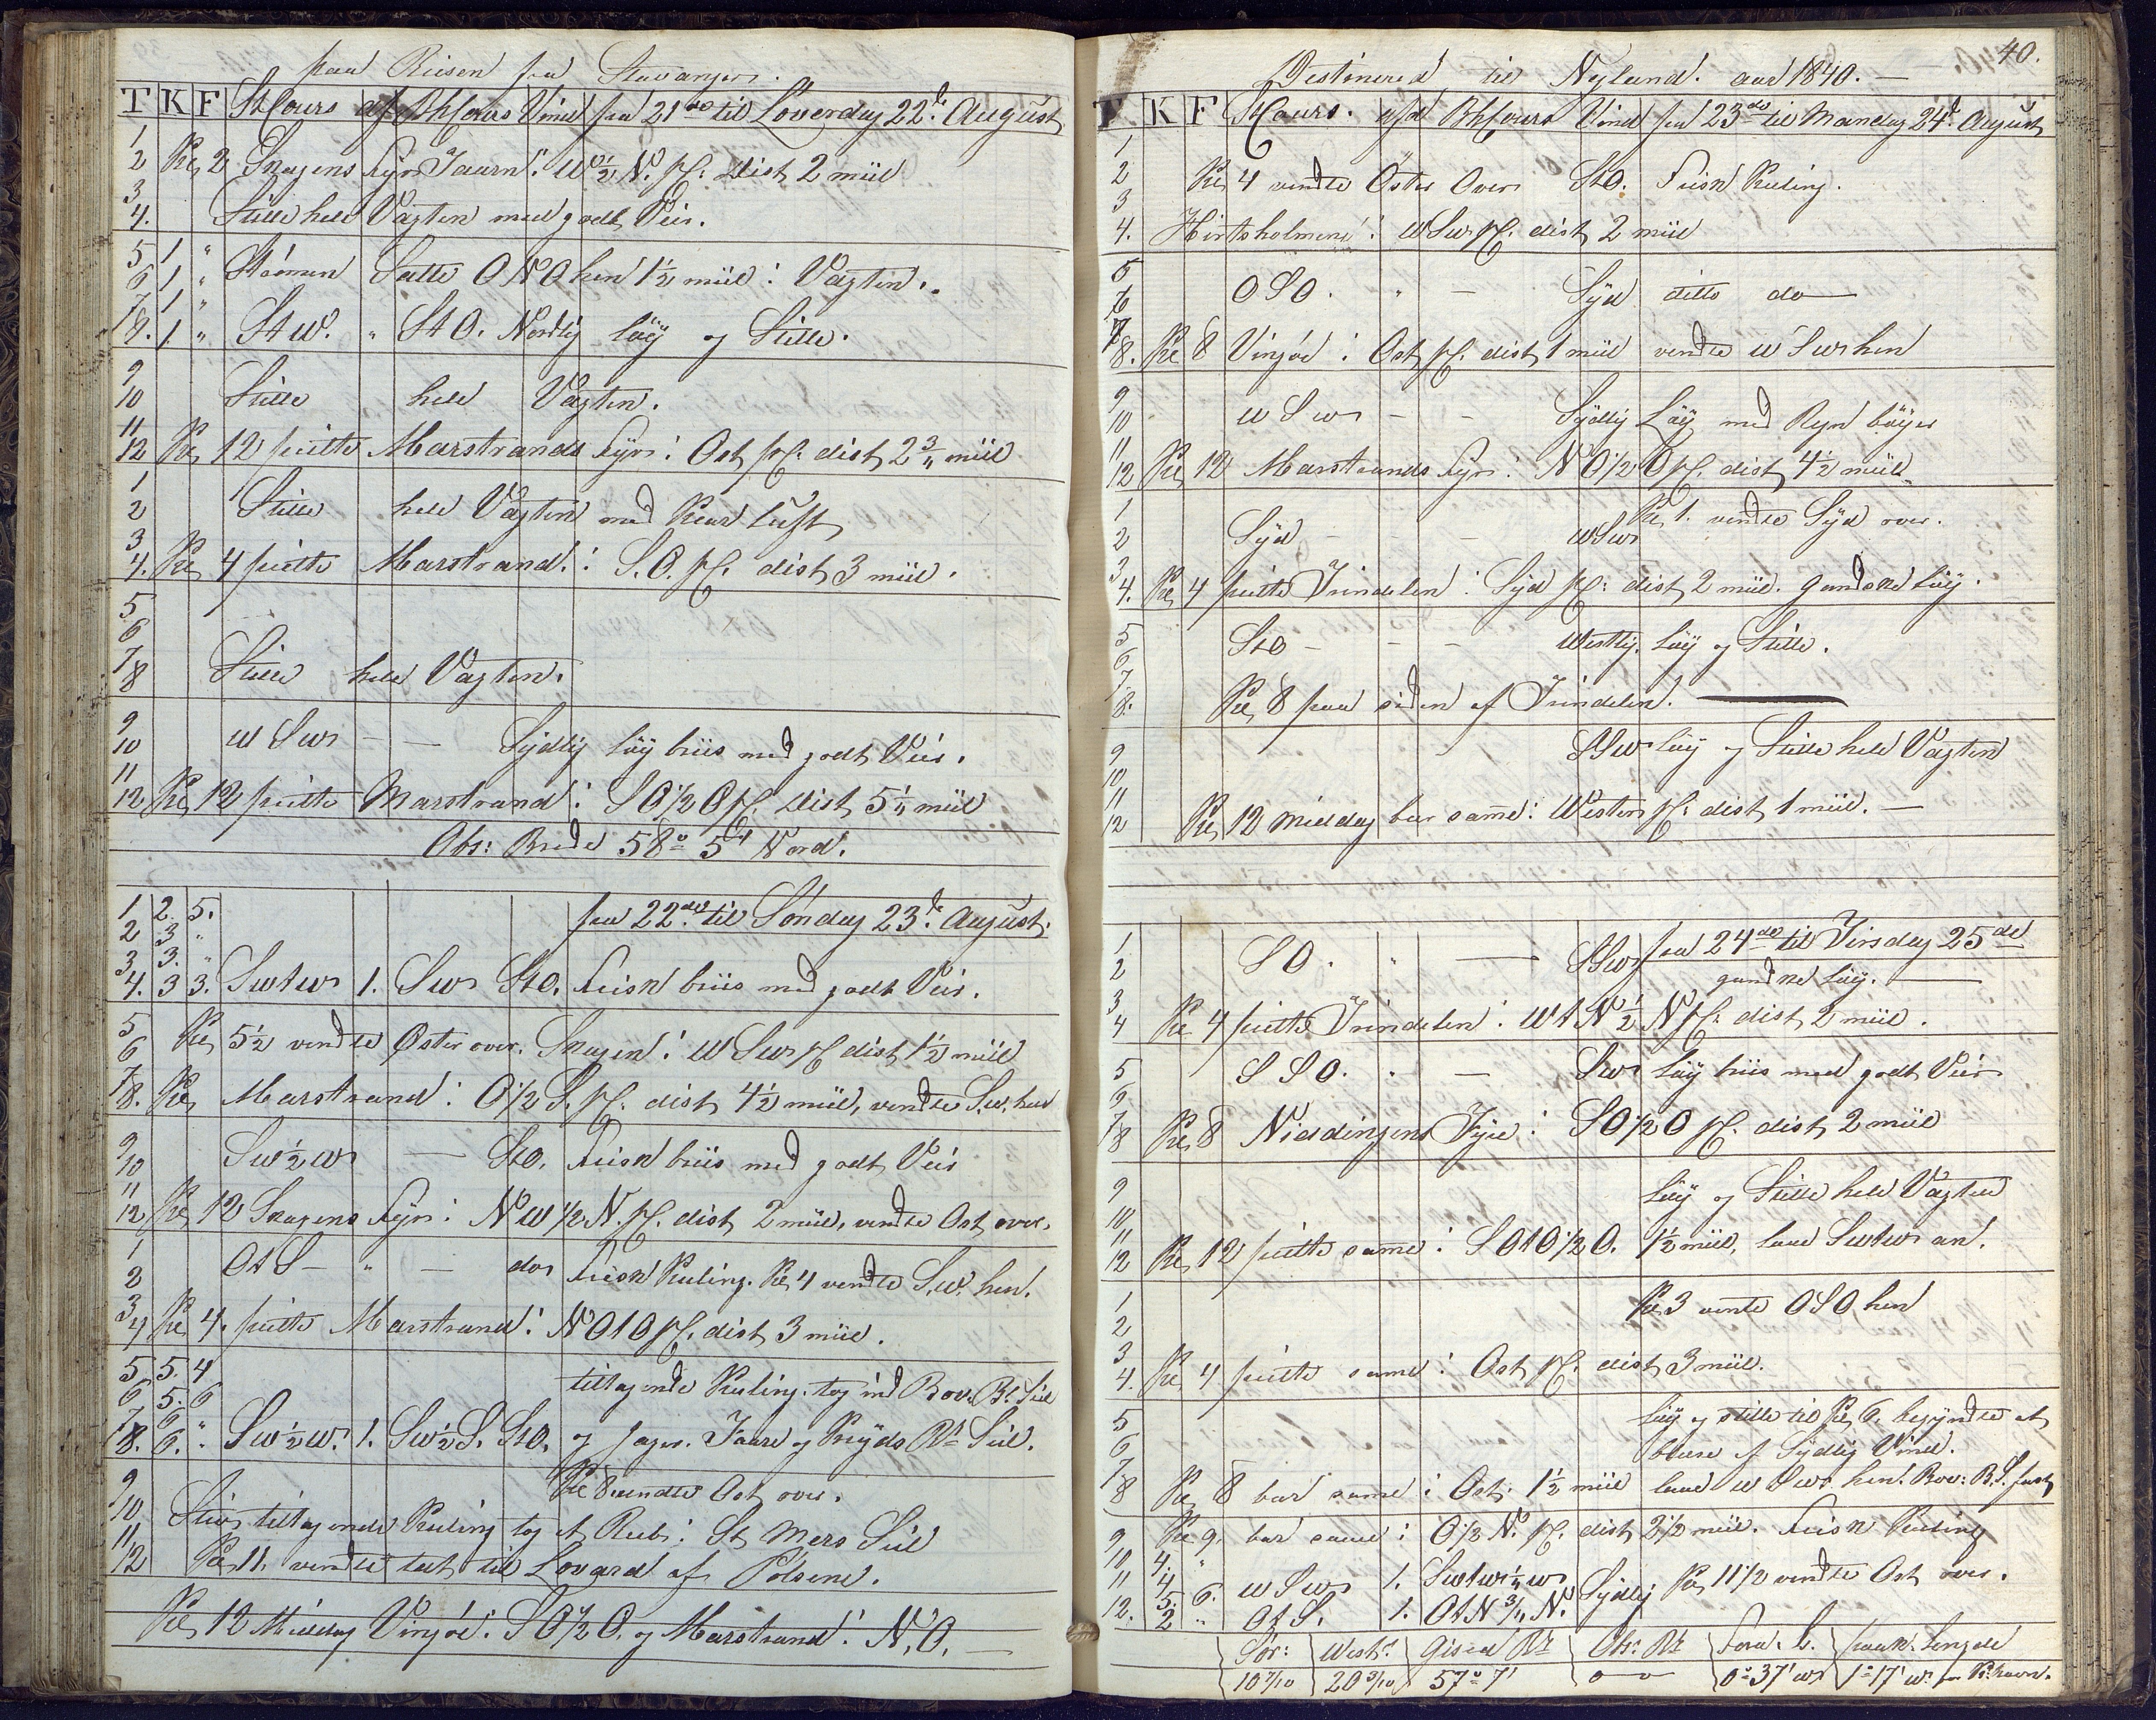 paa Reisen fra Stavanger.
T K F StCours afd BhCours Vind fra 21de til Löverdag 22de August
1
2 Kl 2 Skagens Fyr Taarn i W ½ N. pC. dist 2 miil
3
4. Stille hele Vagten med godt Veir.
5 1 "
6 1 " Strömen Satte ONO hen 1½ miil i Vagten.
7 1 "
8. 1 " StW. " StO. Nordlig löy og Stille.
9
10 Stille hele Vagten.
11
12 Kl 12 peilte Marstrands Fyr i Ost pC. dist 2¾ miil
1
2 Stille hele Vagten med Klar Luft
3
4. Kl 4 peilte Marstrand i S.O. pC. dist 3 miil.
5
6
7
8 Stille hele Vagten.
9
10 W S W — — Sydlig löy briis med godt Veir.
11
12 Kl 12 peilte Marstrand i SO½O pC. dist 5¼ miil
Obs: Brede 58° 5' Nord.
1 2. 5. fra 22de til Söndag 23de August.
2 3 "
3 3. "
4. 3 3. SWtW 1. SW StO. Frisk briis med godt Veir.
5
6 Kl 5½ vendte Öster over. Skagen i W SW pC dist 1½ miil
7
8. Kl Marstrand i O½S. pC. dist 4½ miil, vendte S.W. hen
9
10 SW½W — StO. Frisk briis med godt Veir
11
12 Kl 12 Skagens Fyr i NW ½ N. pC. dist 2 miil, vendte Ost over.
1
2 OtS — " — do Frisk Kuling. Kl 4 vendte S.W. hen.
3
4 Kl 4. peilte Marstrand i NOtO pC. dist 3 miil.
5 5. 4 tiltagende Kuling. tog ind Bov. Bl. Seil
6 5. 6
7 6 "
8. 6. " SW½W. 1. SW½S. StO. og Jager. Faare og Kryds Bl Seil.
9 Kl 8 vendte Ost over.
10 Stiv tiltagende Kuling tog et Reb i St Mers Seil
11
12 Kl 11 vendte tet til Lovard af Pölsene.
Kl 12 Middag Vingöe i SO½O. og Marstrand i N.O. —
40.
Destinered til Nyland. aar 1840. —
T K F StCours. afd BhCours Vind fra 23de til Mandag 24de August
1
2 Kl 4 vendte Öster Over StO. Frisk Kuling.
3
4. Hirtsholmene i WSW pC. dist 2 miil
5
6 OSO. " — Syd ditto do —
7
8. Kl 8 Vingöe i Ost pC. dist 1 miil vendte W SW hen
9
10 W S W — — Sydlig Löy med Regn böyer
11
12 Kl 12 Marstrands Fyr i NO½O pC. dist 4½ miil.
1 Kl 1. vendte Syd over.
2 Syd — — — WSW
3
4. Kl 4 peilte Trindelen i Syd pC. dist 2 miil. gandske löy.
5
6 StO — — — Westlig. löy og Stille.
7
8. Kl 8 paa siden af Trindelen. —
9 SSW löy og Stille hele Vagten
10
11
12 Kl 12 Middag bar same i Westen pC. dist 1 miil. —
1 fra 24de til Tirsdag 25de
2 SO. " — SSW gandske löy. —
3
4 Kl 4 peilte Trindelen i WtN½N pC. dist 2 miil.
5 S S O. " — SW löy briis med godt Veir
6
7
8 Kl 8 Niddingens Fyre i SO½O pC. dist 2 miil
9 löy og Stille hele Vagten
10
11
12 Kl 12 peilte same i SOtO½O. 1½ miil, laae SWtW an.
1 Kl 3 vendte OSO hen
2
3
4. Kl 4 peilte same i Ost pC. dist 3 miil.
5 löy og stille til Kl 6. begyndte at
6 blæse af Sydlig Vind.
7
8 Kl 8 bar same i Ost. 1½ miil laae W SW hen. Bov: B.S. fast
9 Kl 9. bar same i O½N. pC. dist 2½ miil. Frisk Kuling
10 4. "
11 4 6. W SW 1. SWtW½W Sydlig Kl 11½ vendte Ost over.
12. 5. 2 " OtS. 1. OtN¾N.
Sör: West: Gised Br Obs: Br Fora. L. paak. Lengde
10 7/10 20 3/10 57° 7' 0 — 0 0° 37' W 1° 17' W fr K.havn.